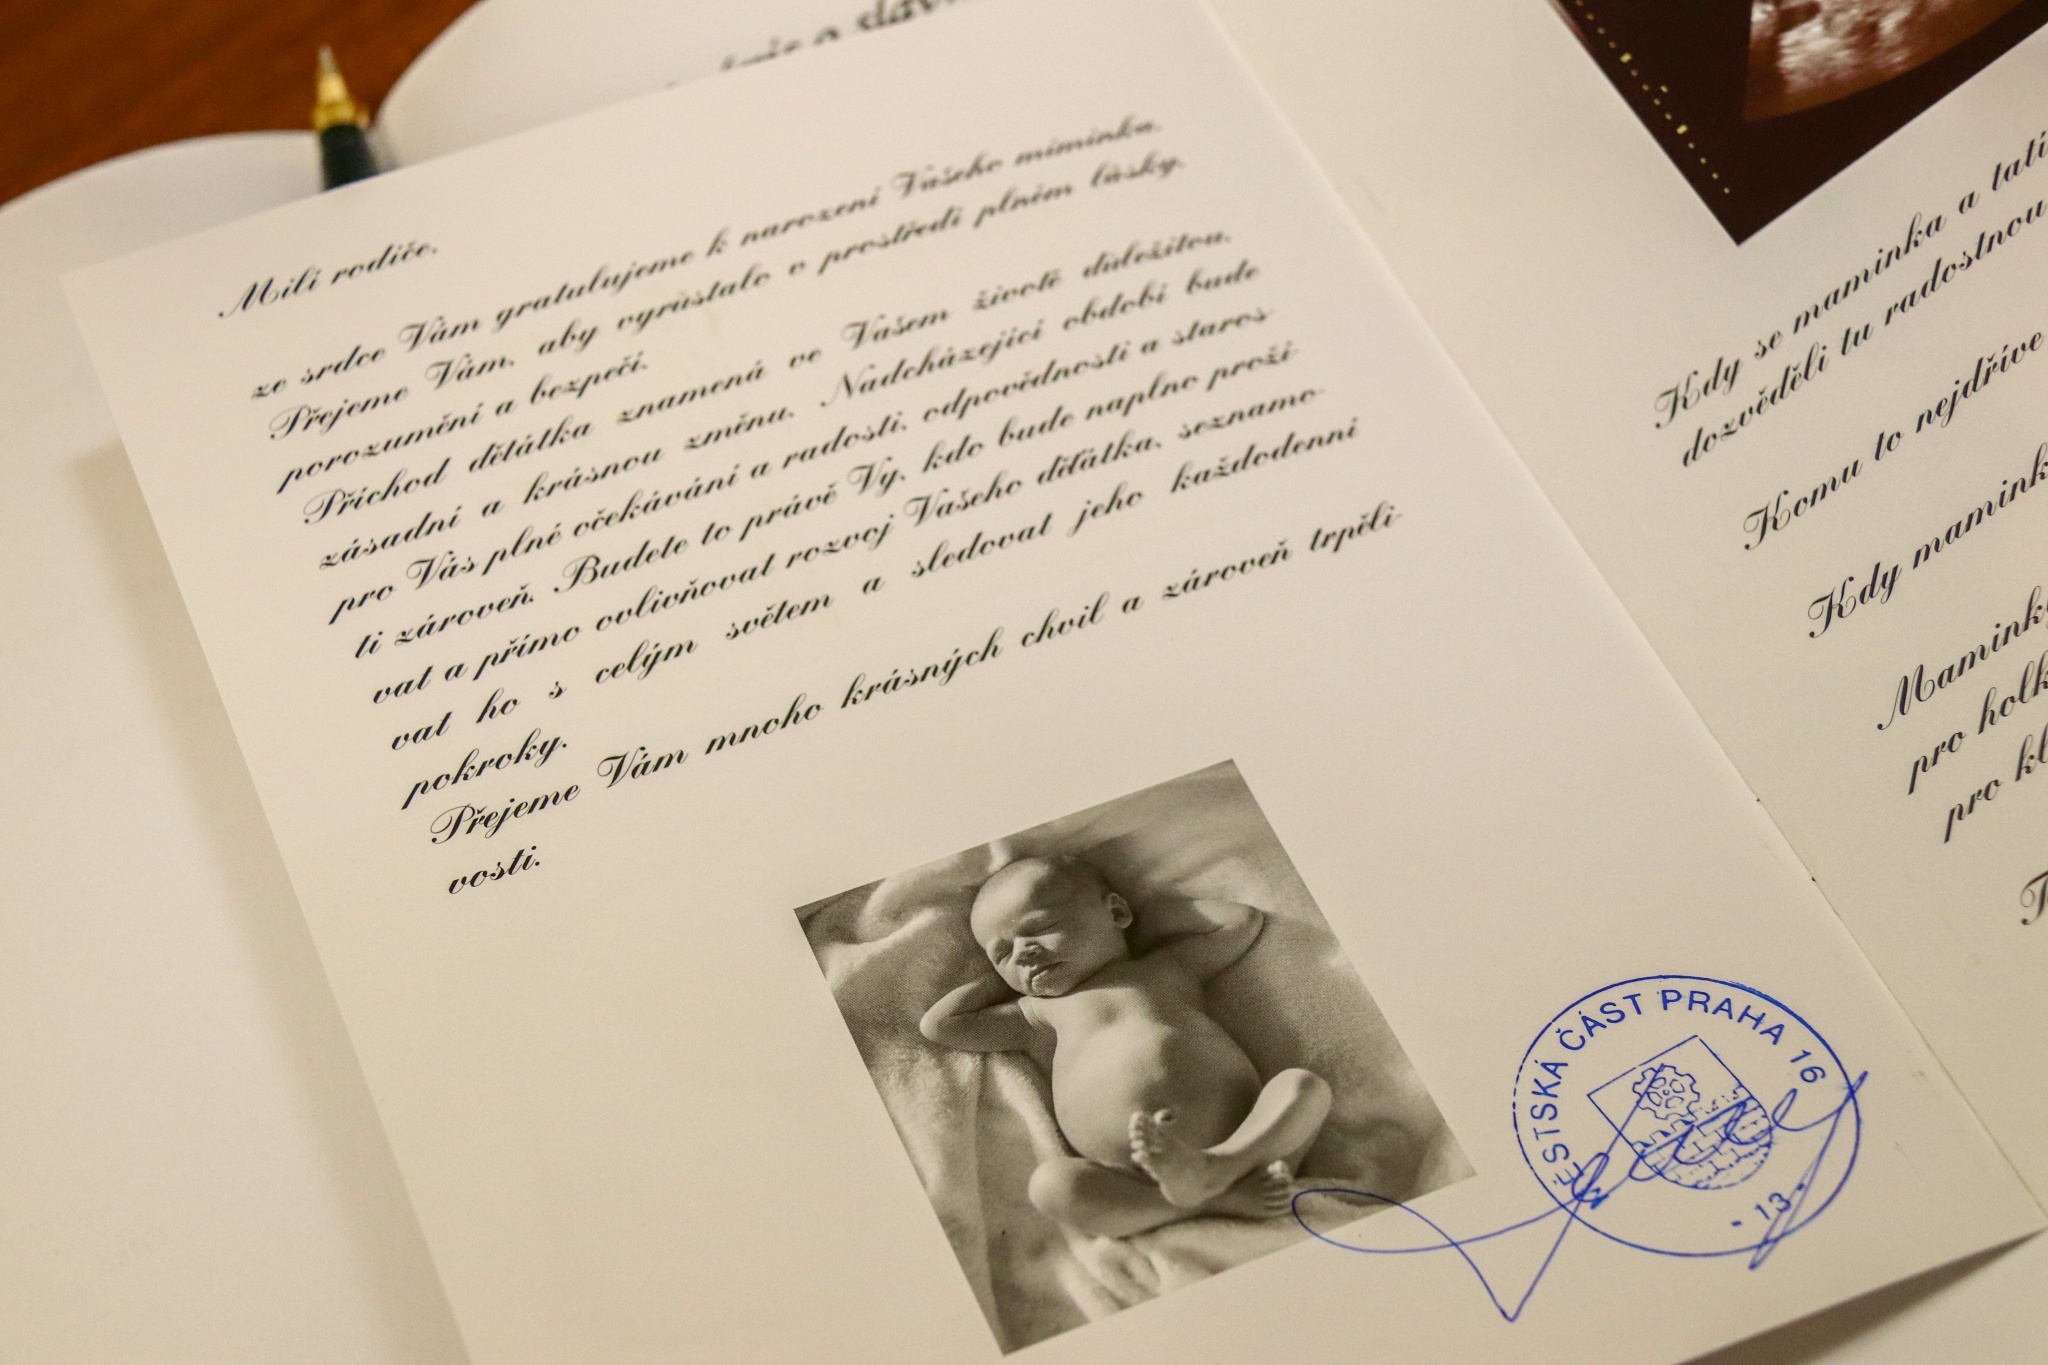 Milí rodiče,
ze srdce Vám gratulujeme k narození Vašeho miminka.
Přejeme Vám, aby vyrůstalo v prostředí plném lásky,
porozumění a bezpečí.
Příchod děťátka znamená ve Vašem životě důležitou,
zásadní a krásnou změnu. Nadcházející období bude
pro Vás plné očekávání a radosti, odpovědnosti a staros-
ti zároveň. Budete to právě Vy, kdo bude naplno proží-
vat a přímo ovlivňovat rozvoj Vašeho děťátka, seznamo-
vat ho s celým světem a sledovat jeho každodenní
pokroky.
Přejeme Vám mnoho krásných chvil a zároveň trpěli-
vosti.
ĚSTSKÁ ČÁST PRAHA 16
- 13 -
Kdy se maminka a tatí
dozvěděli tu radostnou
Komu to nejdříve
Kdy mamink
Maminky
pro holk
pro kl